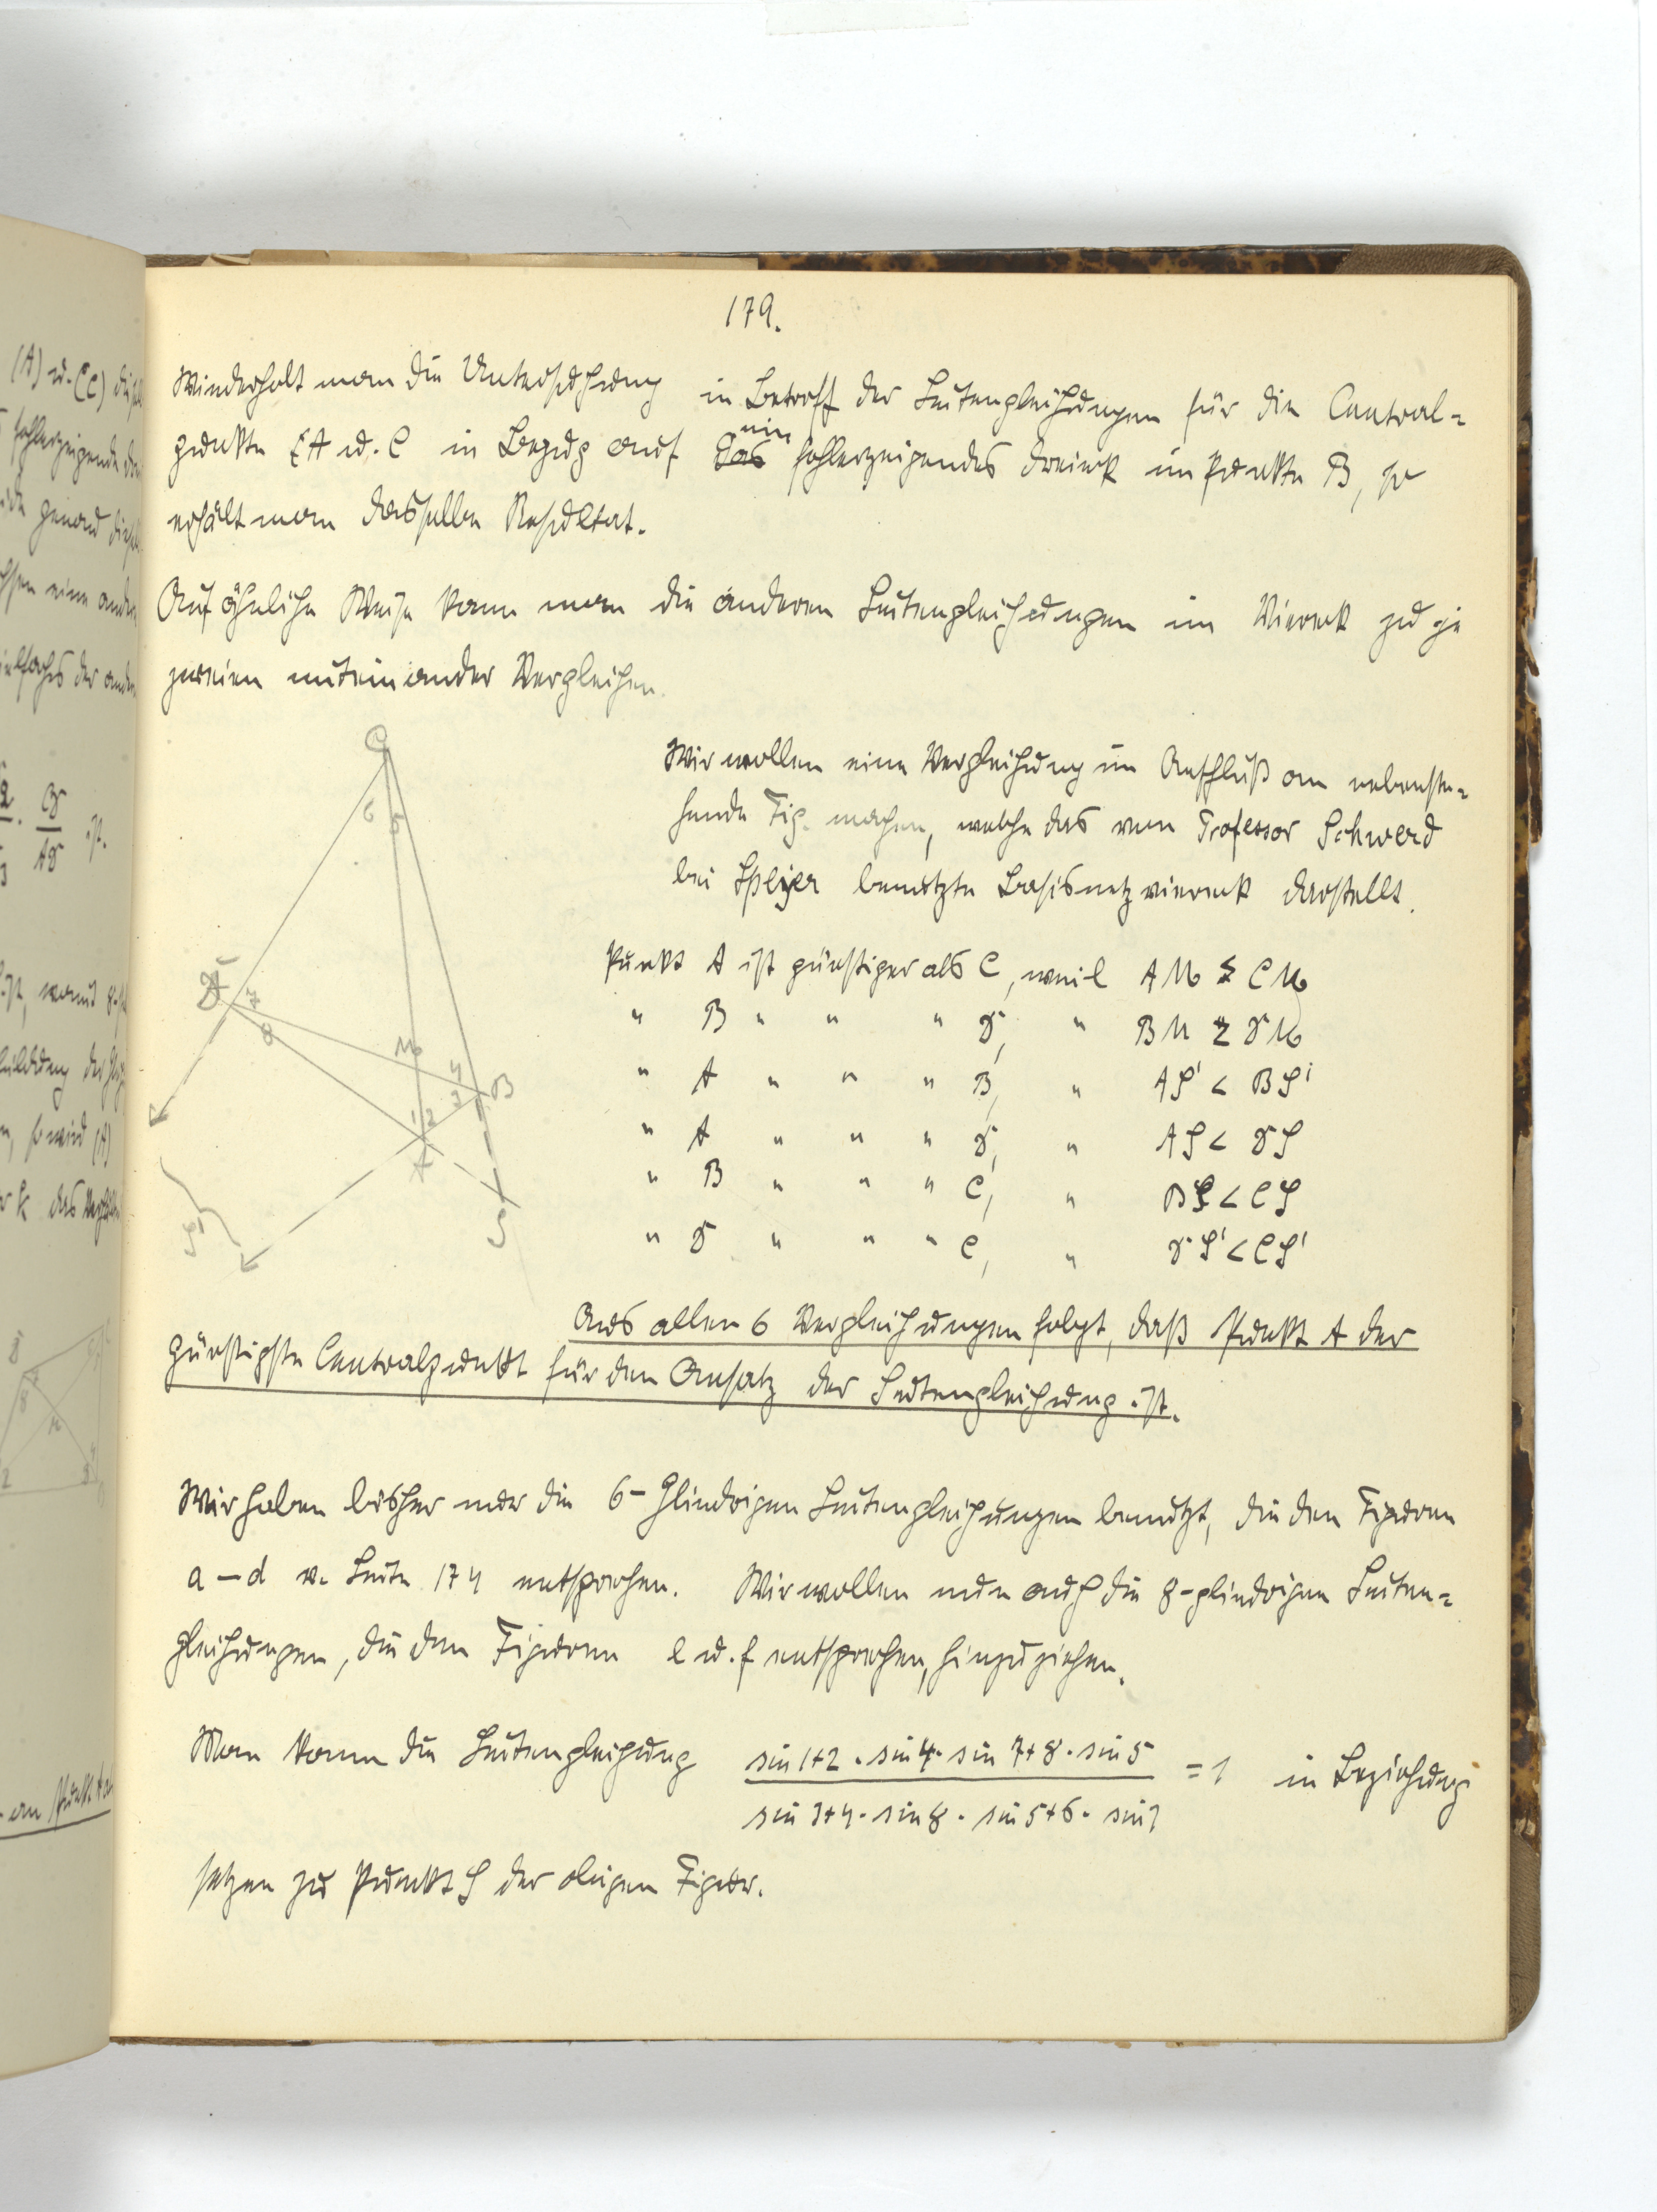 179.
Wiederholt man die Untersuchung in Betreff der Seitengleichungen für die Central=
punkte A u. C in Bezug auf ein fehlerzeigendes Dreieck im Punkte B, so
erhält man dasselbe Resultat.
Auf ähnliche Weise kann man die anderen Seitengleichungen im Viereck zu je
zweien miteinander Vergleichen.
Wir wollen eine Vergleichung im Anschluß an nebenste=
hende Fig. machen, welche das vom Professor Schwerd
bei Speyer benutzte Basisnetzviereck darstellt.
Punkt A ist günstiger als C, weil AM < CM
" B " " " D, " BM < DM
" A " " " B, " AS' < BS'
" A " " " D, " AS < DS
" B " " " C, " BS < CS
" D " " " C, " DS' < CS'
C
6 5
D
7
8
M
4
3
B
1 2
A
S
S'
Aus allen 6 Vergleichungen folgt, daß Punkt A der
günstigste Centralpunkt für den Ansatz der Seitengleichung ist.
Wir haben bisher nur die 6-gliedrigen Seitengleichungen benutzt, die den Figuren
a – d v. Seite 174 entsprechen. Wir wollen nun auch die 8-gliedrigen Seiten=
gleichungen, die den Figuren e u. f entsprechen, hinzuziehen.
Man kann die Seitengleichung sin 1+2 · sin 4 · sin 7+8 · sin 5 / sin 3+4 · sin 8 · sin 5+6 · sin 1 = 1 in Beziehung
setzen zu Punkt S der obigen Figur.